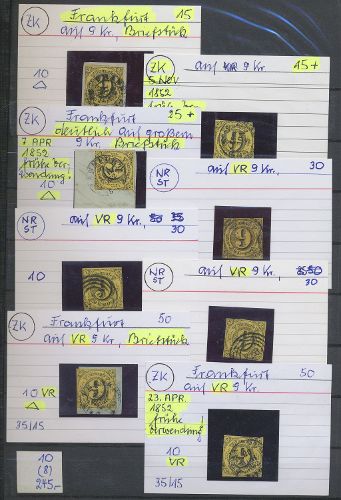 ZK Frankfurt 15
auf 9 Kr., Briefstück
10
ZK auf VR 9 Kr. 15+
5 NOV
1852
ZK Frankfurt 25+
deutlich auf großem
7 APR. VR 9 Kr. Briefstück
1852
frühe Ver
wendung!
10
NR
ST
auf VR 9 Kr. 30
NR
ST
auf VR 9 Kr.,
30
10
NR
ST
auf VR 9 Kr.,
30
ZK Frankfurt 50
auf VR 9 Kr., Briefstück
10 VR
35/15
ZK Frankfurt 50
auf VR 9 Kr.
23. APR.
1852
frühe
Verwendung!
10
VR
35/15
10
(8)
245,-